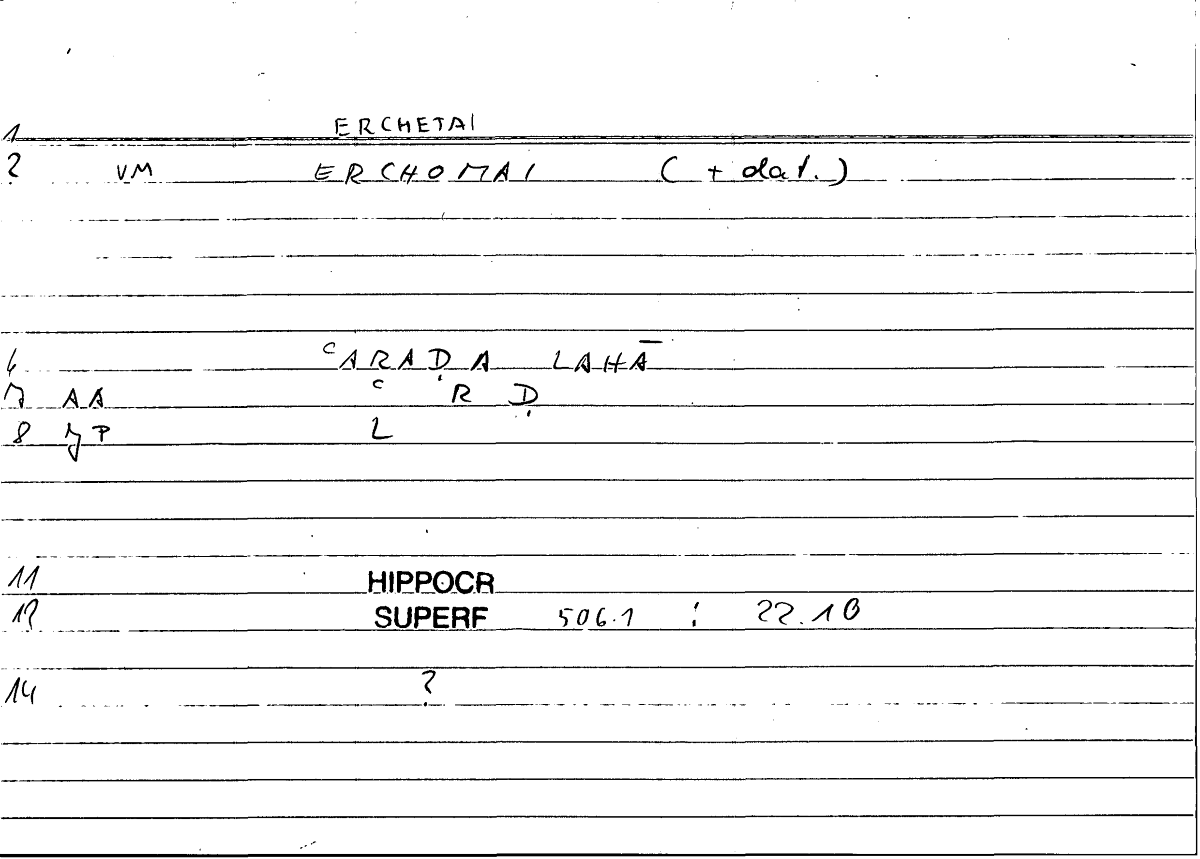 1 ERCHETAI
2 VM ERCHOMAI ( + dat. )
6 ʿARAḌA LAHĀ
7 AA ʿ R Ḍ
8 JP L
11 HIPPOCR
12 SUPERF 506.1 : 22.10
14 ?